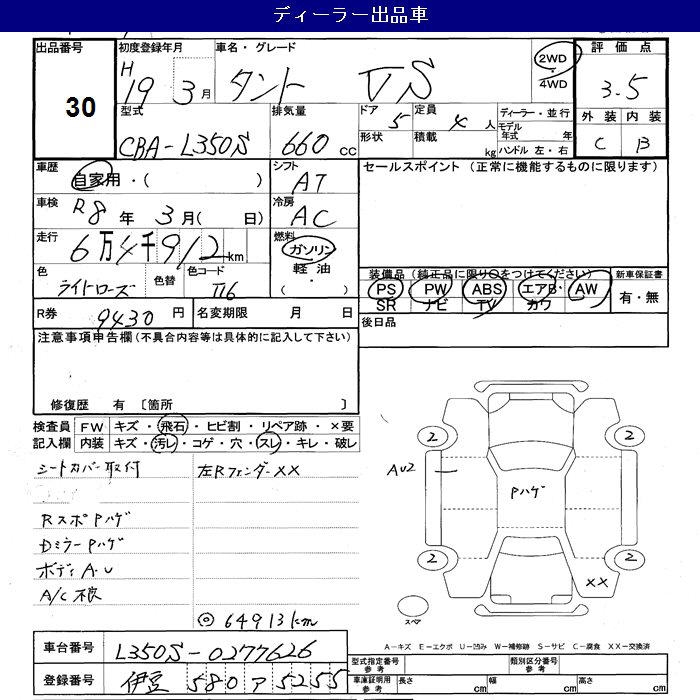 ディーラー出品車
出品番号 30
初度登録年月 H 19 3月
車名・グレード タント VS
2WD
4WD
評価点 3.5
外装 内装
C B
型式 CBA-L350S
排気量 660 cc
ドア 5
形状
定員 4 人
積載 kg
ディーラー・並行
モデル年式 年
ハンドル 左・右
車歴 自家用・( )
シフト AT
セールスポイント (正常に機能するものに限ります)
車検 R8年 3月( 日)
冷房 AC
走行 6万4千912km
燃料 ガソリン
軽油
( ・ )
色 ライトローズ
色替
色コード T16
装備品(純正品に限り○をつけてください)
PS PW ABS エアB・AW
SR ナビ TV カワ
新車保証書
有・無
R券 9430 円
名変期限 月 日
後日品
注意事項申告欄(不具合内容等は具体的に記入して下さい)
修復歴 有 〔箇所 〕
検査員記入欄
FW キズ・飛石・ヒビ割・リペア跡・×要
内装 キズ・汚レ・コゲ・穴・スレ・キレ・破レ
シートカバー取付
左RフェンダーXX
RスポPハゲ
DミラーPハゲ
ボディA.U
◎64913km
2 2
AU2
Pハゲ
2 2
XX
スペア
A-キズ E-エクボ U-凹み W-補修跡 S-サビ C-腐食 XX-交換済
車台番号 L350S-0277626
登録番号 伊豆 580 ア 5255
型式指定番号 参考
類別区分番号 参考
車庫証明用 参考
長さ cm
幅 cm
高さ cm